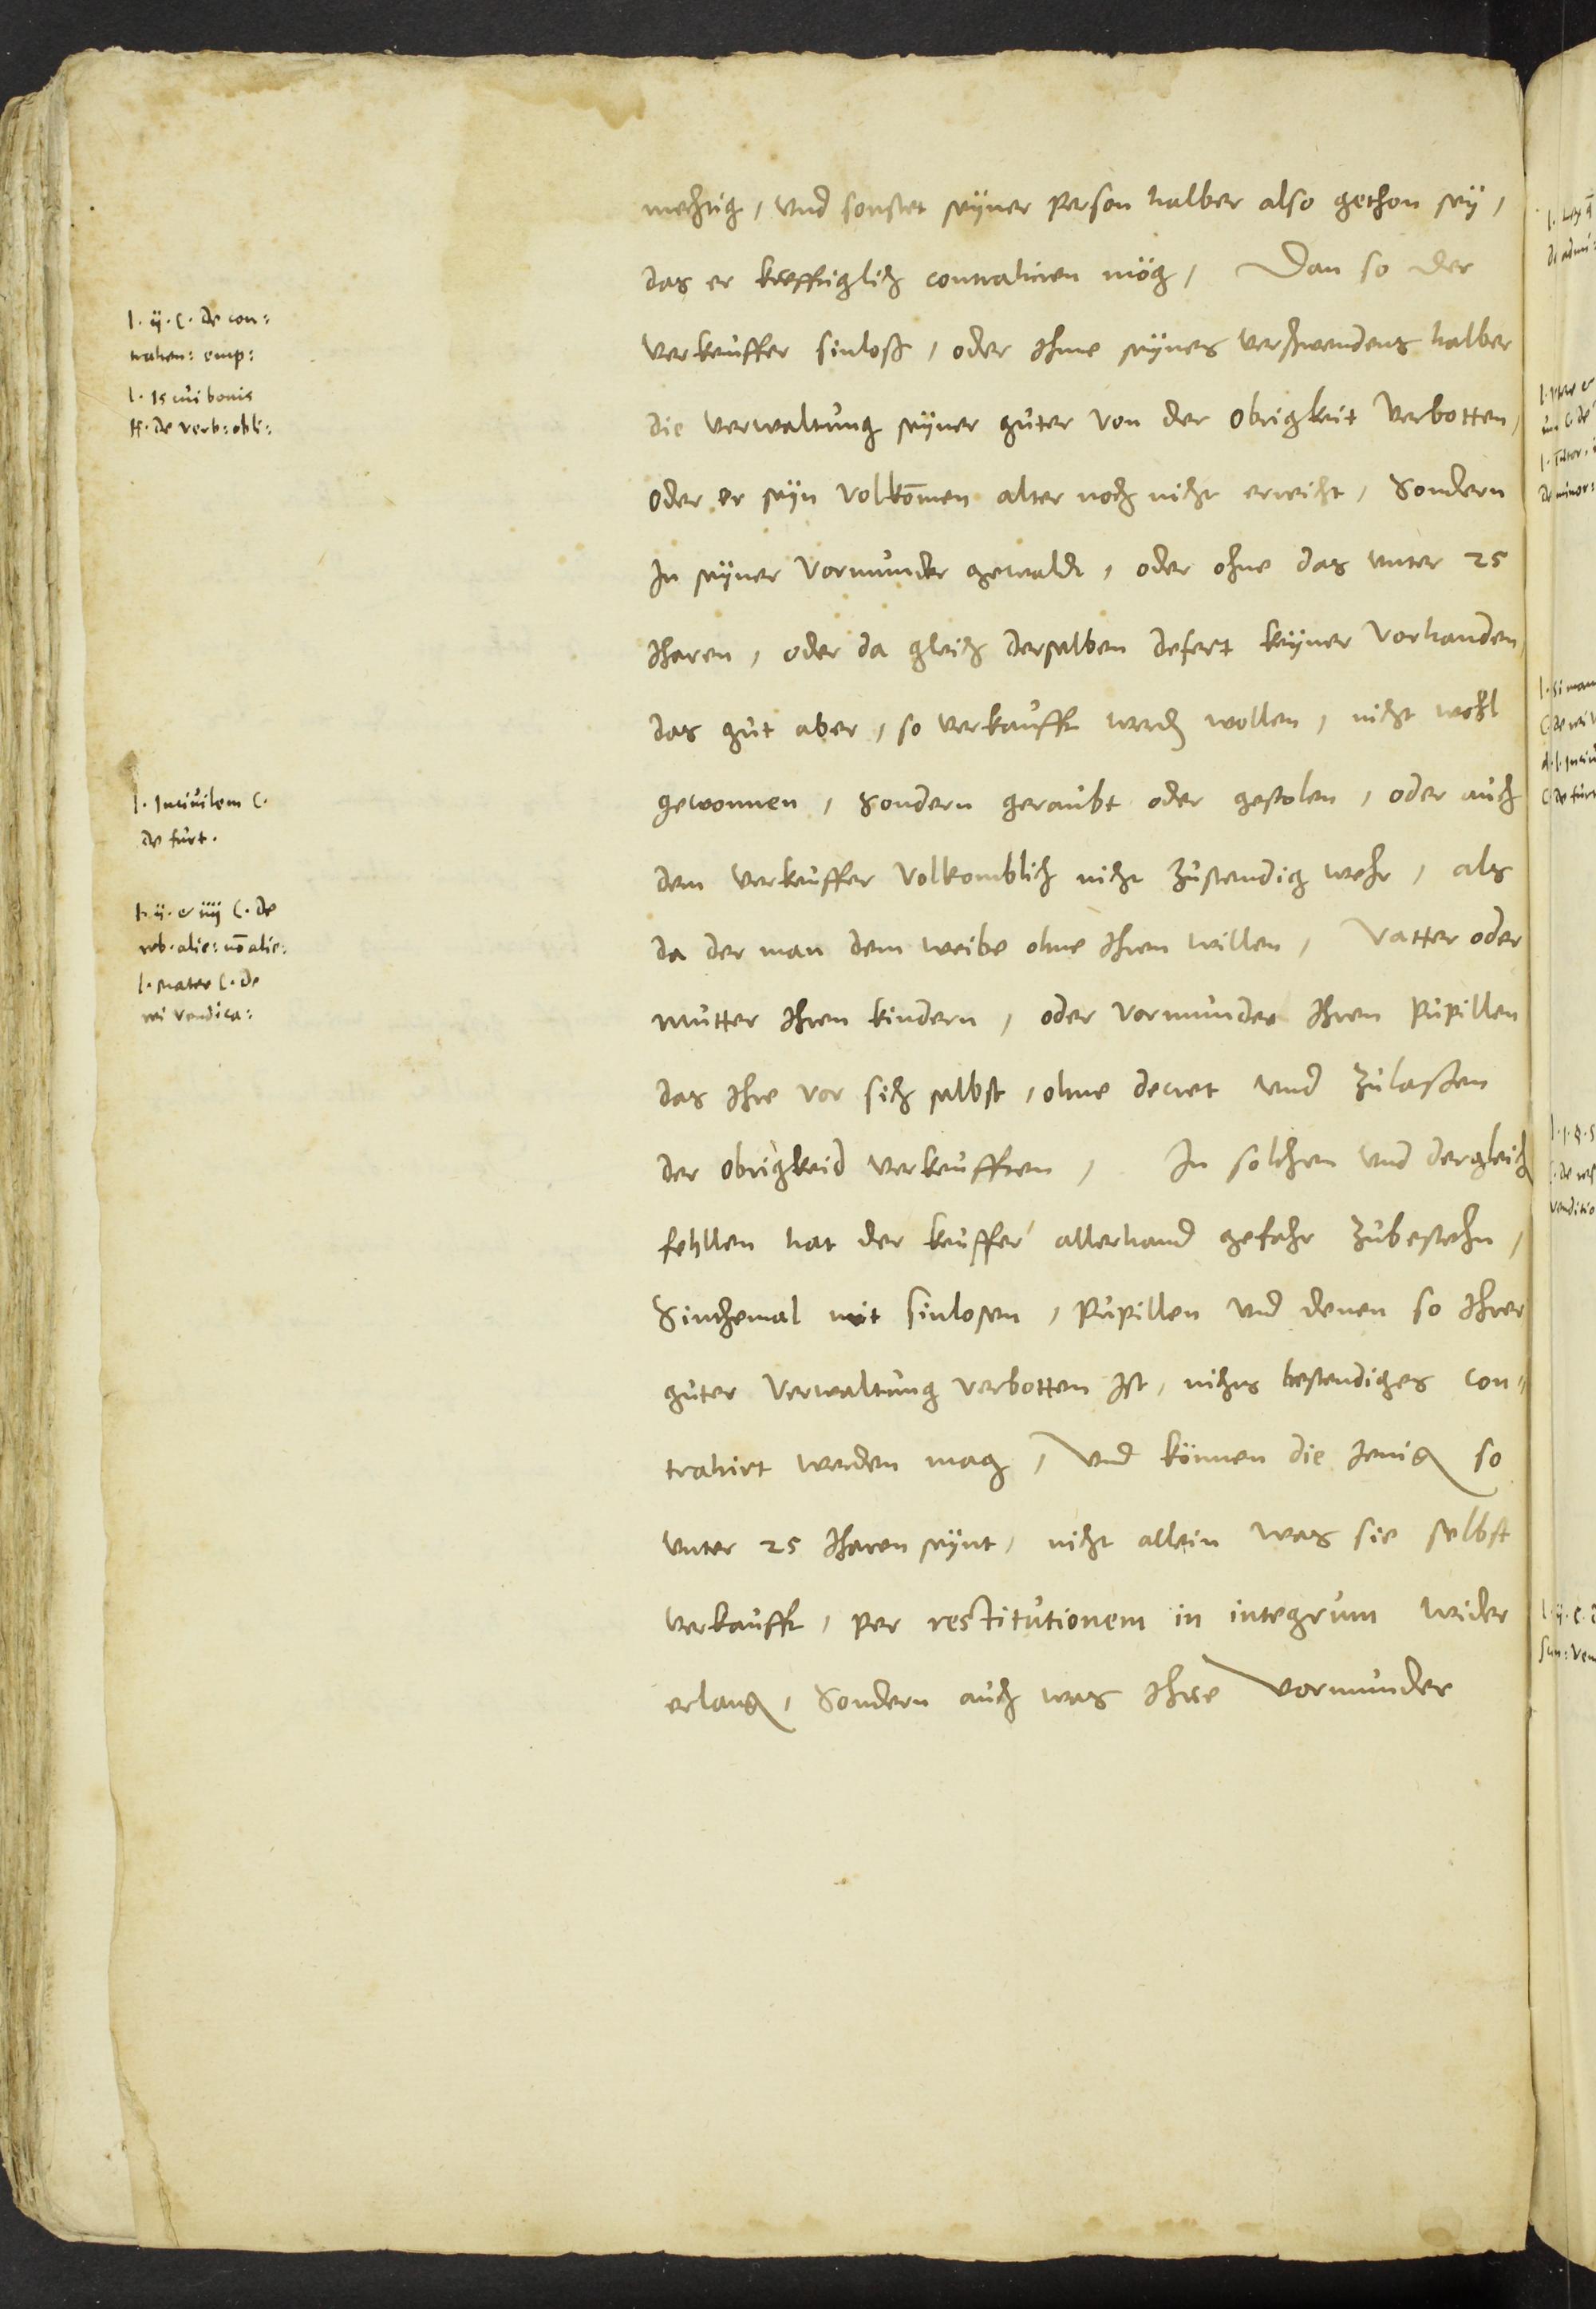 mechtig, vnd sonstet seyner Person halber also gethon sey,
das er krefftiglich contrahiren mög, Dan so der
verkeuffer sinloß, oder Ihme seynes verschwendens halber
die verwaltung seyner güter von der Obrigkeit verbotten,
oder er seyn volkom̄en alter noch nicht erreicht, Sondern
In seyner Vormunder gewaldt, oder ohne das vnter 25
Jharen, oder da gleich derselben defect keyner vorhanden,
das gut aber, so verkaufft werden wollen, nicht wohl
gewonnen, Sondern geraubt oder gestolen, oder auch
dem verkeuffer volkomblich nicht zustendig wehr, als
da der man dem weibe ohne Ihren willen, Vatter oder
mutter Ihren kindern, oder Vormunder Ihren Pupillen
das Ihre vor sich selbst, ohne decret vnd zulaßen
der Obrigkeid verkeufften, In solchen vnd dergleichen
fehllen hat der keuffer allerhand gefahr zubestehn,
Sinthemal mit sinlosen, Pupillen vnd denen so Ihrer
güter verwaltung verbotten Ist, nichts bestendiges con-
trahirt werden mag, Vnd können die Jenigen so
vnter 25 Jharen seynt, nicht allein was sie selbst
verkaufft, per restitutionem in integrum wider
erlangen, Sondern auch was Ihre Vormunder
l. ij. C. de con:
trahen: emp:
l. Is cui bonis
ff. de verb: obli:
l. Inciuilem C.
de furt.
l. ij. et iiij C. de
reb. alie: nō alie:
l. mater C. de
rei vendica: